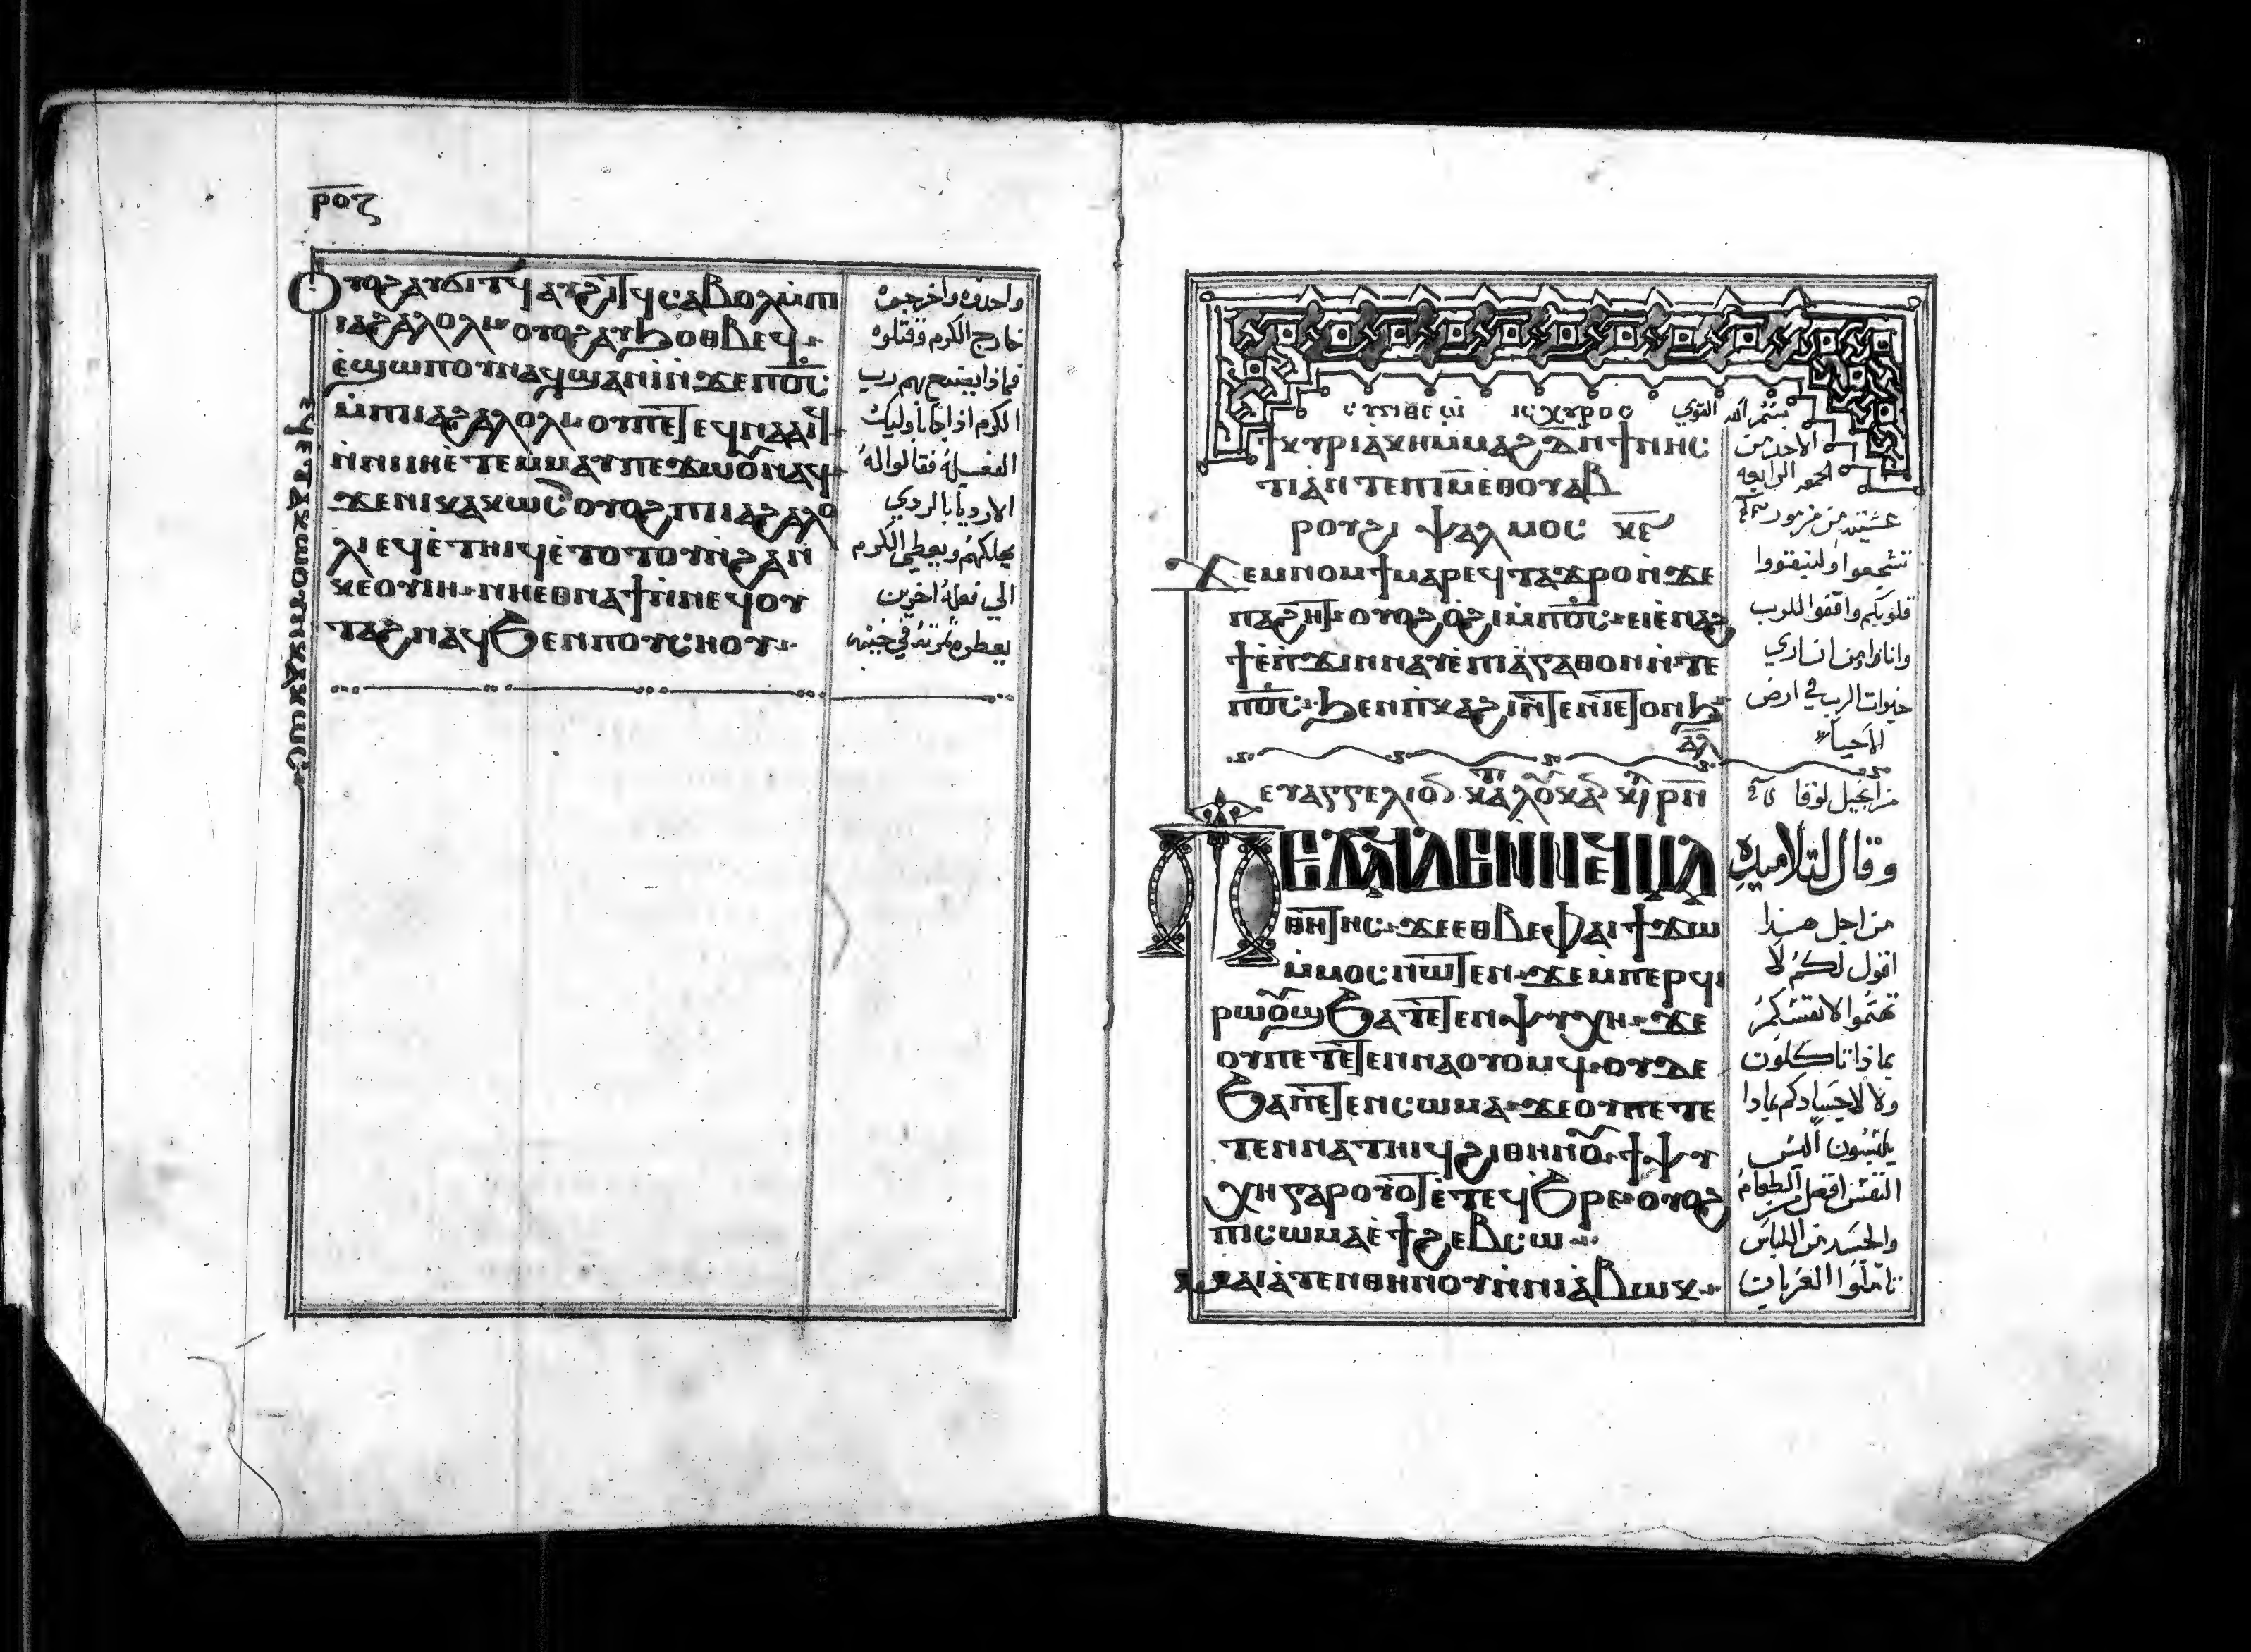 ⲣⲟⲍ
Ⲟⲩⲟϩ ⲁⲩϭⲓⲧϥ ⲁⲩϩⲓⲧϥ ⲥⲁⲃⲟⲗ ⲙ̀ⲡⲓ
ⲓⲁϩⲁⲗⲟⲗⲓ ⲟⲩⲟϩ ⲁⲩϧⲟⲑⲃⲉϥ
ⲉ̀ϣⲱⲡ ⲟⲩⲛ ⲁϥϣⲁⲛⲓ̀ ⲛ̀ϫⲉ ⲡⲟ̅ⲥ̅
ⲙ̀ⲡⲓⲓⲁϩⲁⲗⲟⲗⲓ ⲟⲩ ⲡⲉⲧⲉϥⲛⲁⲁⲓϥ
ⲛ̀ⲛⲓⲟⲩⲓⲏ ⲉ̀ⲧⲉⲙⲙⲁⲩ ⲡⲉϫⲱⲟⲩ ⲛⲁϥ
ϫⲉ ⲛⲓⲕⲁⲕⲱⲥ ⲟⲩⲟϩ ⲡⲓⲓⲁϩⲁⲗⲟ
ⲗⲓ ⲉϥⲉ̀ⲧⲏⲓϥ ⲉ̀ⲧⲟⲧⲟⲩ ⲛ̀ϩⲁⲛ
ⲕⲉⲟⲩⲓⲏ ⲛⲏ ⲉⲑⲛⲁϯ ⲙ̀ⲡⲉϥⲟⲩ
ⲧⲁϩ ⲛⲁϥ ϧⲉⲛ ⲡⲟⲩⲥⲏⲟⲩ
واخذوه واخرجوه
خارج الكرم وقتلوه
فماذا يصنع بهم رب
الكرم اذا جا باوليك
الفعلة فقالوا له
الاردياء بالردي
يهلكهم ويعطي الكرم
الي فعلة اخرين
يعطوه ثمرته في حينه
ⲥⲩⲛⲑⲉⲱ ⲓⲥⲭⲩⲣⲟⲥ
بسم الله القوي
ϯⲕⲩⲣⲓⲁⲕⲏ ⲙ̀ⲙⲁϩ ⲇ̅ ⲛ̀ϯⲛⲏⲥ
ⲧⲓⲁ̀ ⲛ̀ⲧⲉ ⲡⲓⲙ̅ ⲉⲑⲟⲩⲁⲃ
ⲣⲟⲩϩⲓ ⲯⲁⲗⲙⲟⲥ ⲕ̅ⲉ̅
Ϫⲉⲙⲛⲟⲙϯ ⲙⲁⲣⲉϥⲧⲁϫⲣⲟ ⲛ̀ϫⲉ
ⲡⲁϩⲏⲧ ⲟⲩⲟϩ ⲟ̀ϩⲓ ⲙ̀ⲡⲟ̅ⲥ̅ ⲉⲓⲉ̀ⲛⲁϩ
ϯ ⲉ̀ⲡ̀ϫⲓⲛⲛⲁⲩ ⲉ̀ⲡⲓⲁ̀ⲅⲁⲑⲟⲛ ⲛ̀ⲧⲉ
ⲡⲟ̅ⲥ̅ ϧⲉⲛ ⲡ̀ⲕⲁϩⲓ ⲛ̀ⲧⲉ ⲛⲓⲉⲧⲟⲛϧ
ⲁ̅ⲗ̅
الاحد من
الجمعه الرابعه
تشجعوا وليتقووا
وانا اومن ان اري
خيرات الرب في ارض
الاحيا
ⲉⲩⲁⲅⲅⲉⲗⲓⲟⲛ ⲕⲁⲧⲁ ⲗⲟⲩⲕⲁⲛ
من انجيل لوقا
Ⲡⲉϫⲁϥ ⲇⲉ ⲛ̀ⲛⲉϥⲙⲁ
ⲑⲏⲧⲏⲥ ϫⲉ ⲉⲑⲃⲉ ⲫⲁⲓ ϯϫⲱ
ⲙ̀ⲙⲟⲥ ⲛⲱⲧⲉⲛ ϫⲉ ⲙ̀ⲡⲉⲣϥⲓ
ⲣⲱⲟⲩϣ ϧⲁ ⲧⲉⲧⲉⲛⲯⲩⲭⲏ ϫⲉ
ⲟⲩ ⲡⲉⲧⲉⲧⲉⲛⲛⲁⲟⲩⲟⲙϥ ⲟⲩⲇⲉ
ϧⲁ ⲡⲉⲧⲉⲛⲥⲱⲙⲁ ϫⲉ ⲟⲩ ⲡⲉⲧⲉ
ⲧⲉⲛⲛⲁⲧⲏⲓϥ ϩⲓⲑⲏⲛⲟⲩ ϯⲯⲩ
ⲭⲏ ⲅⲁⲣ ⲟⲩⲟⲧ ⲉ̀ⲧⲉϥϧⲣⲉ ⲟⲩⲟϩ
ⲡⲓⲥⲱⲙⲁ ⲉ̀ϯϩⲉⲃⲥⲱ
ⲙⲁⲓⲁ̀ⲧⲉⲛⲑⲏⲛⲟⲩ ⲛ̀ⲛⲓⲁ̀ⲃⲱⲕ
وقال لتلاميذه
من اجل هذا
اقول لكم لا
تهتموا لانفسكم
بماذا تاكلون
ولا لاجسادكم بماذا
تلبسون اليس
النفس افضل من الطعام
والجسد من اللباس
تاملوا الغربان